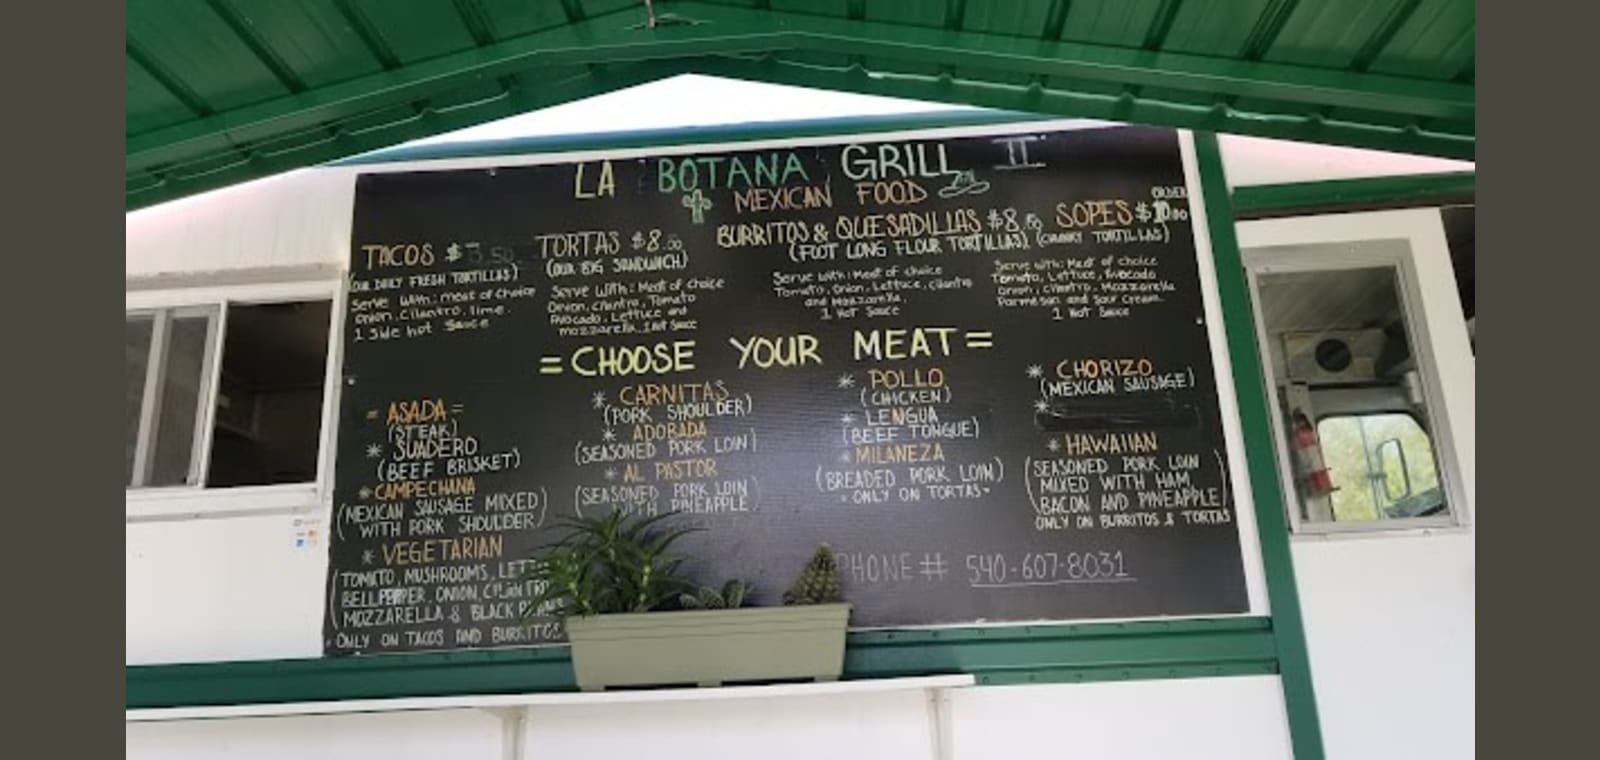 LA BOTANA GRILL II
MEXICAN FOOD
TACOS $3.50
(OUR DAILY FRESH TORTILLAS)
Serve with: meat of choice
onion, cilantro, lime.
1 Side hot Sauce
TORTAS $8.00
(OUR BIG SANDWICH)
Serve with: Meat of choice
Onion, cilantro, Tomato
Avocado, Lettuce and
mozzarella, 1 Hot Sauce
BURRITOS & QUESADILLAS $8.50
(FOOT LONG FLOUR TORTILLAS)
Serve with: Meat of choice
Tomato, Onion, Lettuce, cilantro
and Mozzarella.
1 Hot Sauce
ORDER
SOPES $10.00
(CHUNKY TORTILLAS)
Serve with: Meat of choice
Tomato, Lettuce, Avocado
Onion, cilantro, Mozzarella
Parmesan and Sour Cream.
1 Hot Sauce
=CHOOSE YOUR MEAT=
= ASADA =
(STEAK)
* SUADERO
(BEEF BRISKET)
* CAMPECHANA
(MEXICAN SAUSAGE MIXED)
WITH PORK SHOULDER)
* VEGETARIAN
(TOMATO, MUSHROOMS,
BELLPEPPER, ONION,
MOZZARELLA & BLACK
• ONLY ON TACOS AND BURRITOS
* CARNITAS
(PORK SHOULDER)
* ADORADA
(SEASONED PORK LOIN)
* AL PASTOR
(SEASONED PORK LOIN
WITH PINEAPPLE)
* POLLO
(CHICKEN)
* LENGUA
(BEEF TONGUE)
* MILANEZA
(BREADED PORK LOIN)
• ONLY ON TORTAS •
* CHORIZO
(MEXICAN SAUSAGE)
*
* HAWAIIAN
(SEASONED PORK LOIN
MIXED WITH HAM,
BACON AND PINEAPPLE)
ONLY ON BURRITOS & TORTAS
PHONE # 540-607-8031